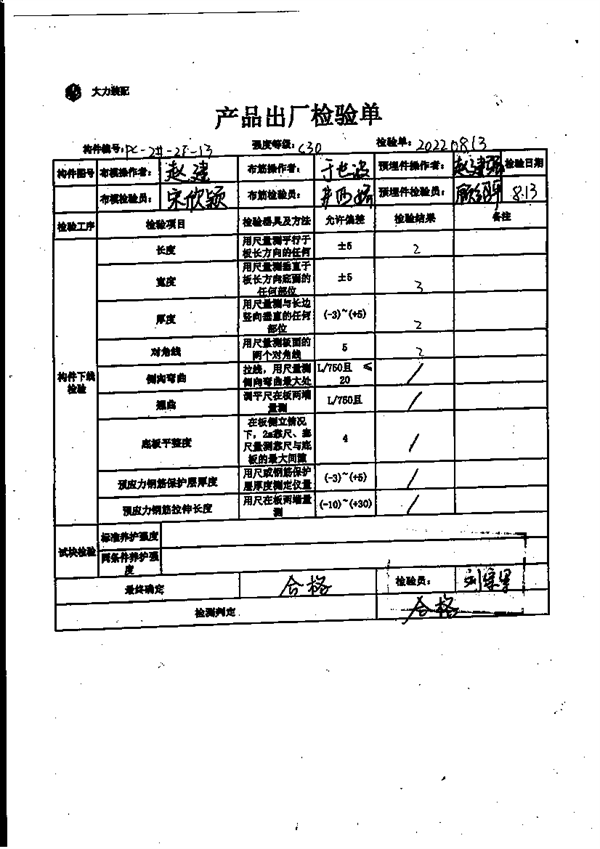 大力装配
产品出厂检验单
构件编号：PC-2#-2F-13 强度等级：C30 检验单：20220813
构件图号 布模操作者：赵建 布筋操作者： 预埋件操作者：赵建强 检验日期
布模检验员：宋欣颖 布筋检验员： 预埋件检验员： 8.13
检验工序 检验项目 检验器具及方法 允许偏差 检验结果 备注
构件下线检验
长度 用尺量测平行于板长方向的任何 ±5 2
宽度 用尺量测垂直于板长方向底面的任何部位 ±5 3
厚度 用尺量测与长边竖向垂直的任何部位 (-3)~(+5) 2
对角线 用尺量测板面的两个对角线 5 2
侧向弯曲 拉线，用尺量测侧向弯曲最大处 L/750且 ≤20 /
翘曲 调平尺在板两端量测 L/750且 /
底板平整度 在板侧立情况下，2m靠尺、塞尺量测靠尺与底板的最大间隙 4 /
预应力钢筋保护层厚度 用尺或钢筋保护层厚度测定仪量 (-3)~(+5) /
预应力钢筋拉伸长度 用尺在板两端量测 (-10)~(+30) /
试块检验 标准养护强度
同条件养护强度
最终确定 合格 检验员：
检测判定 合格